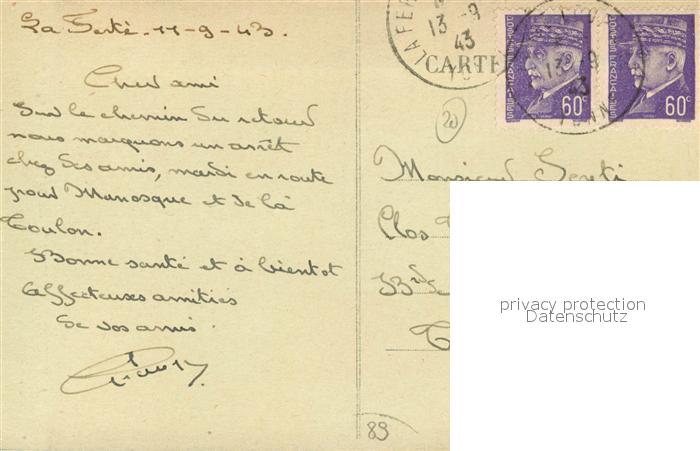 La Ferté. 11-9-43.
Cher ami
Sur le chemin du retour
nous marquons un arrêt
chez des amis, mardi en route
pour Manosque et de là
Toulon.
Bonne santé et à bientot
Affectueuses amitiés
de vos amis.
LA FER
13 -9
43
CARTE
POSTES FRANCAISES
60c
13 -9
43
YONN
60c
20
Monsieur
Clos
privacy protection
Datenschutz
89